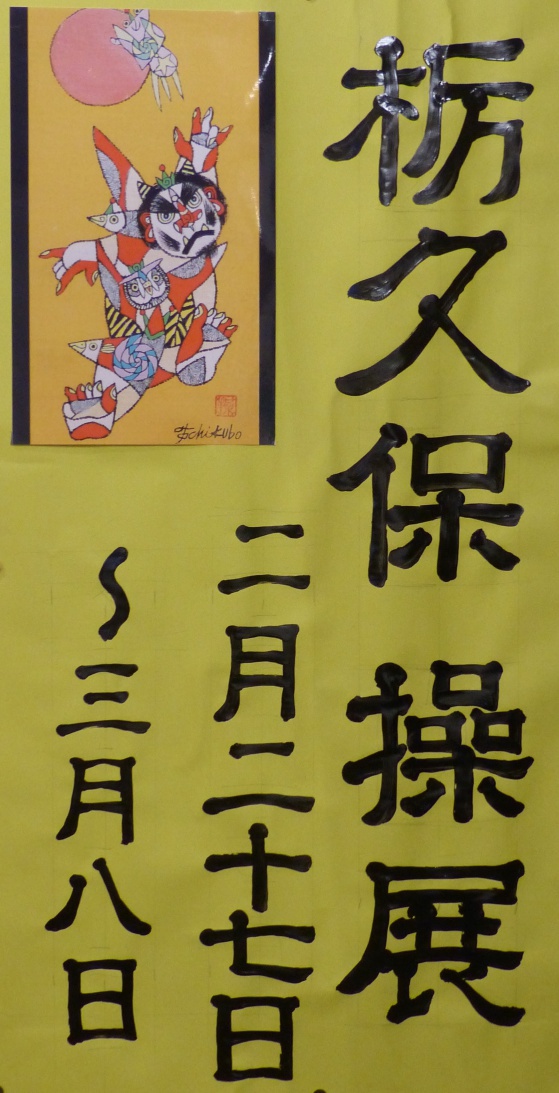 栃久保操展
二月二十七日
～三月八日